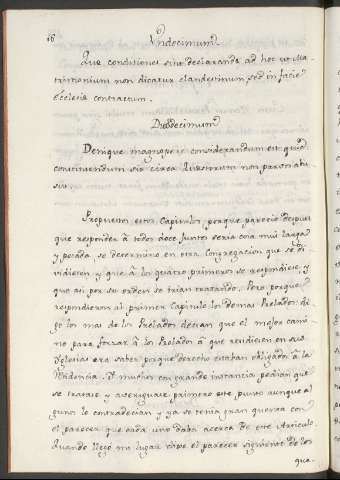 18
Vndecimum
Que conditiones sint declarandæ ad hoc vt Ma-
trimonium non dicatur clandestinum, sed in facie
Ecclesiæ contractum.
Duodecimum
Denique magnopere considerandum est quid
constituendum sit circa Quæstorum non paruos abu-
sus.
Propuestos estos Capitulos, porque parecio despues
que responder à todos doce juntos seria cosa mui larga
y pesada, se determino en otra Congregacion que se di-
vidiesen y que à los quatro primeros se respondiese, y
que asi por su orden se irian tratando. Pero porque
respondieron al primer Capitulo los demas Prelados di-
go los mas de los Prelados decian que el mejor cami-
no para forzar à los Prelados à que residiesen en sus
Yglesias era saber porque derecho estaban obligados à la
Residencia. Y muchos con grande instancia pedian que
se tratase y averiguase primero este punto aunque al-
gunos lo contradecian y ya se tenia gran guerra con
el parecer que cada uno daba acerca de este Articulo.
Quando llegò mi lugar dixe el parecer siguiente de los
que